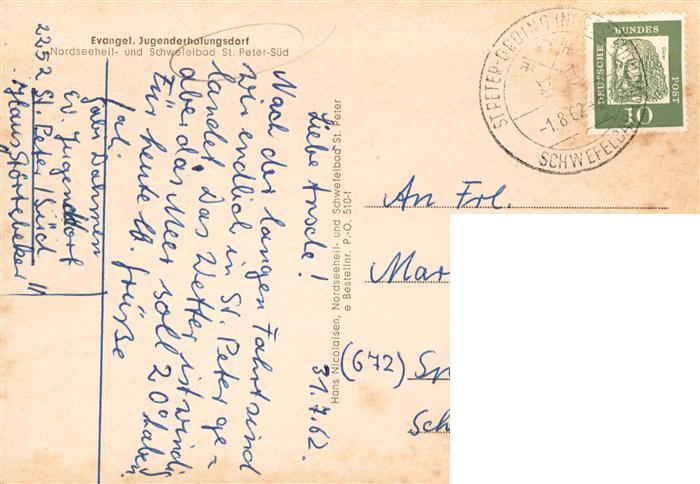 Evangel. Jugenderholungsdorf
Nordseeheil- und Schwefelbad St. Peter-Süd
ST. PETER-ORDING
-1.8.62
SCHWEFELBAD
DEUTSCHE BUNDES POST
10
Hans Nicolaisen, Nordseeheil- und Schwefelbad St. Peter
e Bestellnr. P.-O. 510-f
31.7.62.
Liebe
Nach der langen Fahrt sind
wir endlich in St. Peter ge=
landet. Das Wetter ist windig
aber das Meer soll 20° haben
Für heute Grüße
Gabi Dahmen
Ev. Jugenddorf
2252 St. Peter / Süd
Haus Störtebeker II
An Frl.
Mar
(672) Sp
Sch